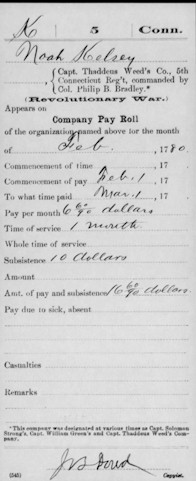 K | 5 | Conn.
Noah Kelsey
Capt. Thaddeus Weed's Co., 5th
Connecticut Reg't, commanded by
Col. Philip B. Bradley.*
(Revolutionary War.)
Appears on
Company Pay Roll
of the organization named above for the month
of Feb., 1780.
Commencement of time , 17
Commencement of pay Feb. 1, 17
To what time paid Mar. 1, 17
Pay per month 6 60/90 dollars
Time of service 1 month
Whole time of service
Subsistence 10 dollars
Amount
Amt. of pay and subsistence 16 60/90 dollars.
Pay due to sick, absent
Casualties
Remarks
*This company was designated at various times as Capt. Solomon
Strong's, Capt. William Green's and Capt. Thaddeus Weed's Com-
pany.
(545) Copyist.